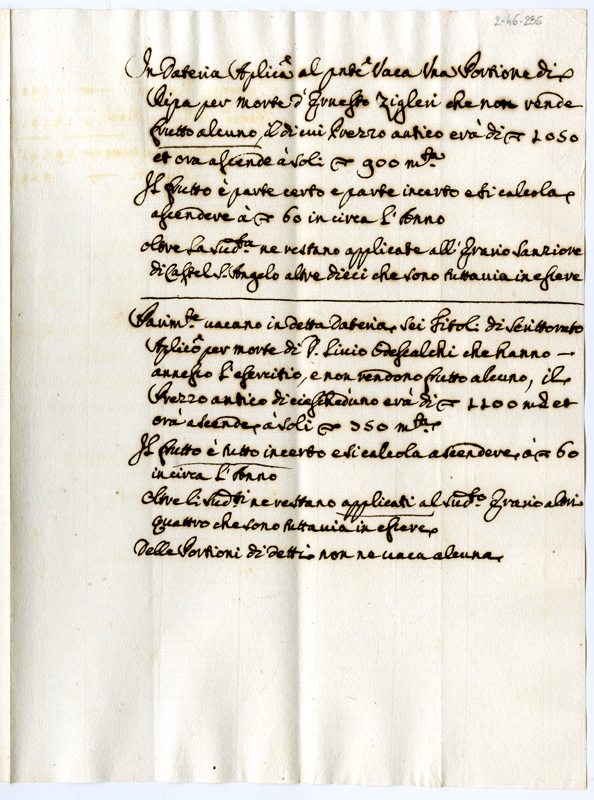 2-46-286
In Dateria Aplicã al pntẽ Vaca Una Portione di
Ripa per morte d'Ernesto Zigleri che non rende
frutto alcuno, il di cui Prezzo antico erà di 1050
et ora ascende à soli 900 mta
Il frutto è parte certo e parte incerto e si calcola
ascendere à 60 in circa l'Anno
Oltre la sudta ne restano applicate all'Erario Sanziore
di Castel S. Angelo altre dieci che sono tuttavia in essere
Parimte vacano in detta Dateria sei Titoli di Scrittorato
Aplicõ per morte di P. Livio Odescalchi che hanno —
annesso l'esercitio, e non rendono frutto alcuno, il
Prezzo antico di ciascheduno erà di 1100 mta et
orà ascende à soli 350 mta
Il frutto è tutto incerto e si calcola ascendere à 60
in circa l'Anno
Oltre li sudti ne restano applicati al sudto Erario altri
quattro che sono tuttavia in essere
Delle Portioni di detti non ne vaca alcuna